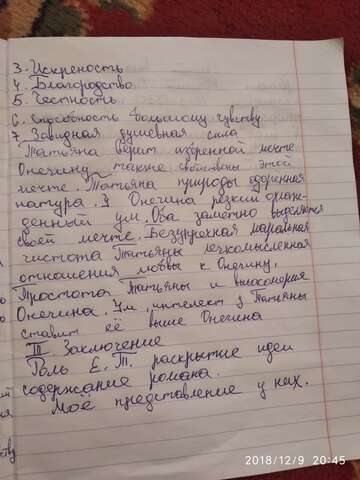 3. Искреность
4. Благородство
5. Честность
6. Способность большому чувству
7. Завидная душевная сила
Татьяна верит избренной мечте
Онегину также свойствены этой
мечте. Татьяна природы одаренная
натура. У Онегина резкий охлаж-
денный ум. Оба заметно выделяются
своей мечте. Безупречная моральная
чистота Татьяны легкомысленная
отношения любвы к Онегину.
Простота Татьяны и высокомерия
Онегина. Ум, интелект у Татьяны
ставит её выше Онегина
III Заключение
Роль Е. Т. раскрытие идеи
содержание романа.
Моё представление у них.
ству
2018/12/9 20:45